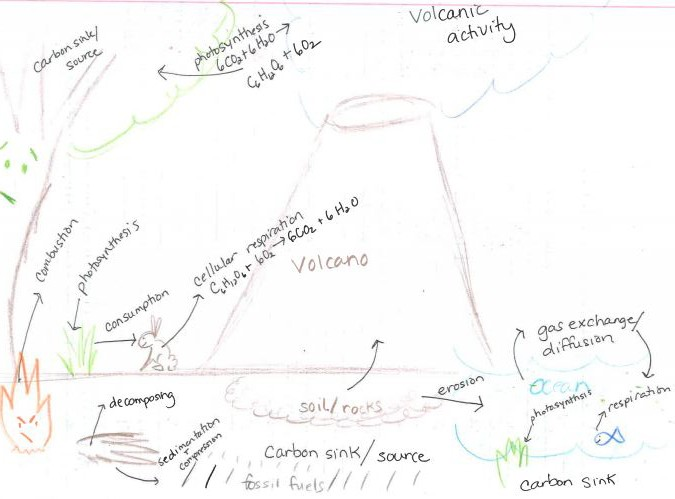 Volcanic
activity
Carbon sink/
source
photosynthesis
6CO2+6H2O→
C6H12O6 + 6O2
combustion
photosynthesis
consumption
cellular respiration
C6H12O6 + 6O2→6CO2 + 6H2O
Volcano
gas exchange/
diffusion
Ocean
photosynthesis
respiration
erosion
soil/rocks
decomposing
sedimentation
+
compression
Carbon sink/source
fossil fuels
Carbon sink